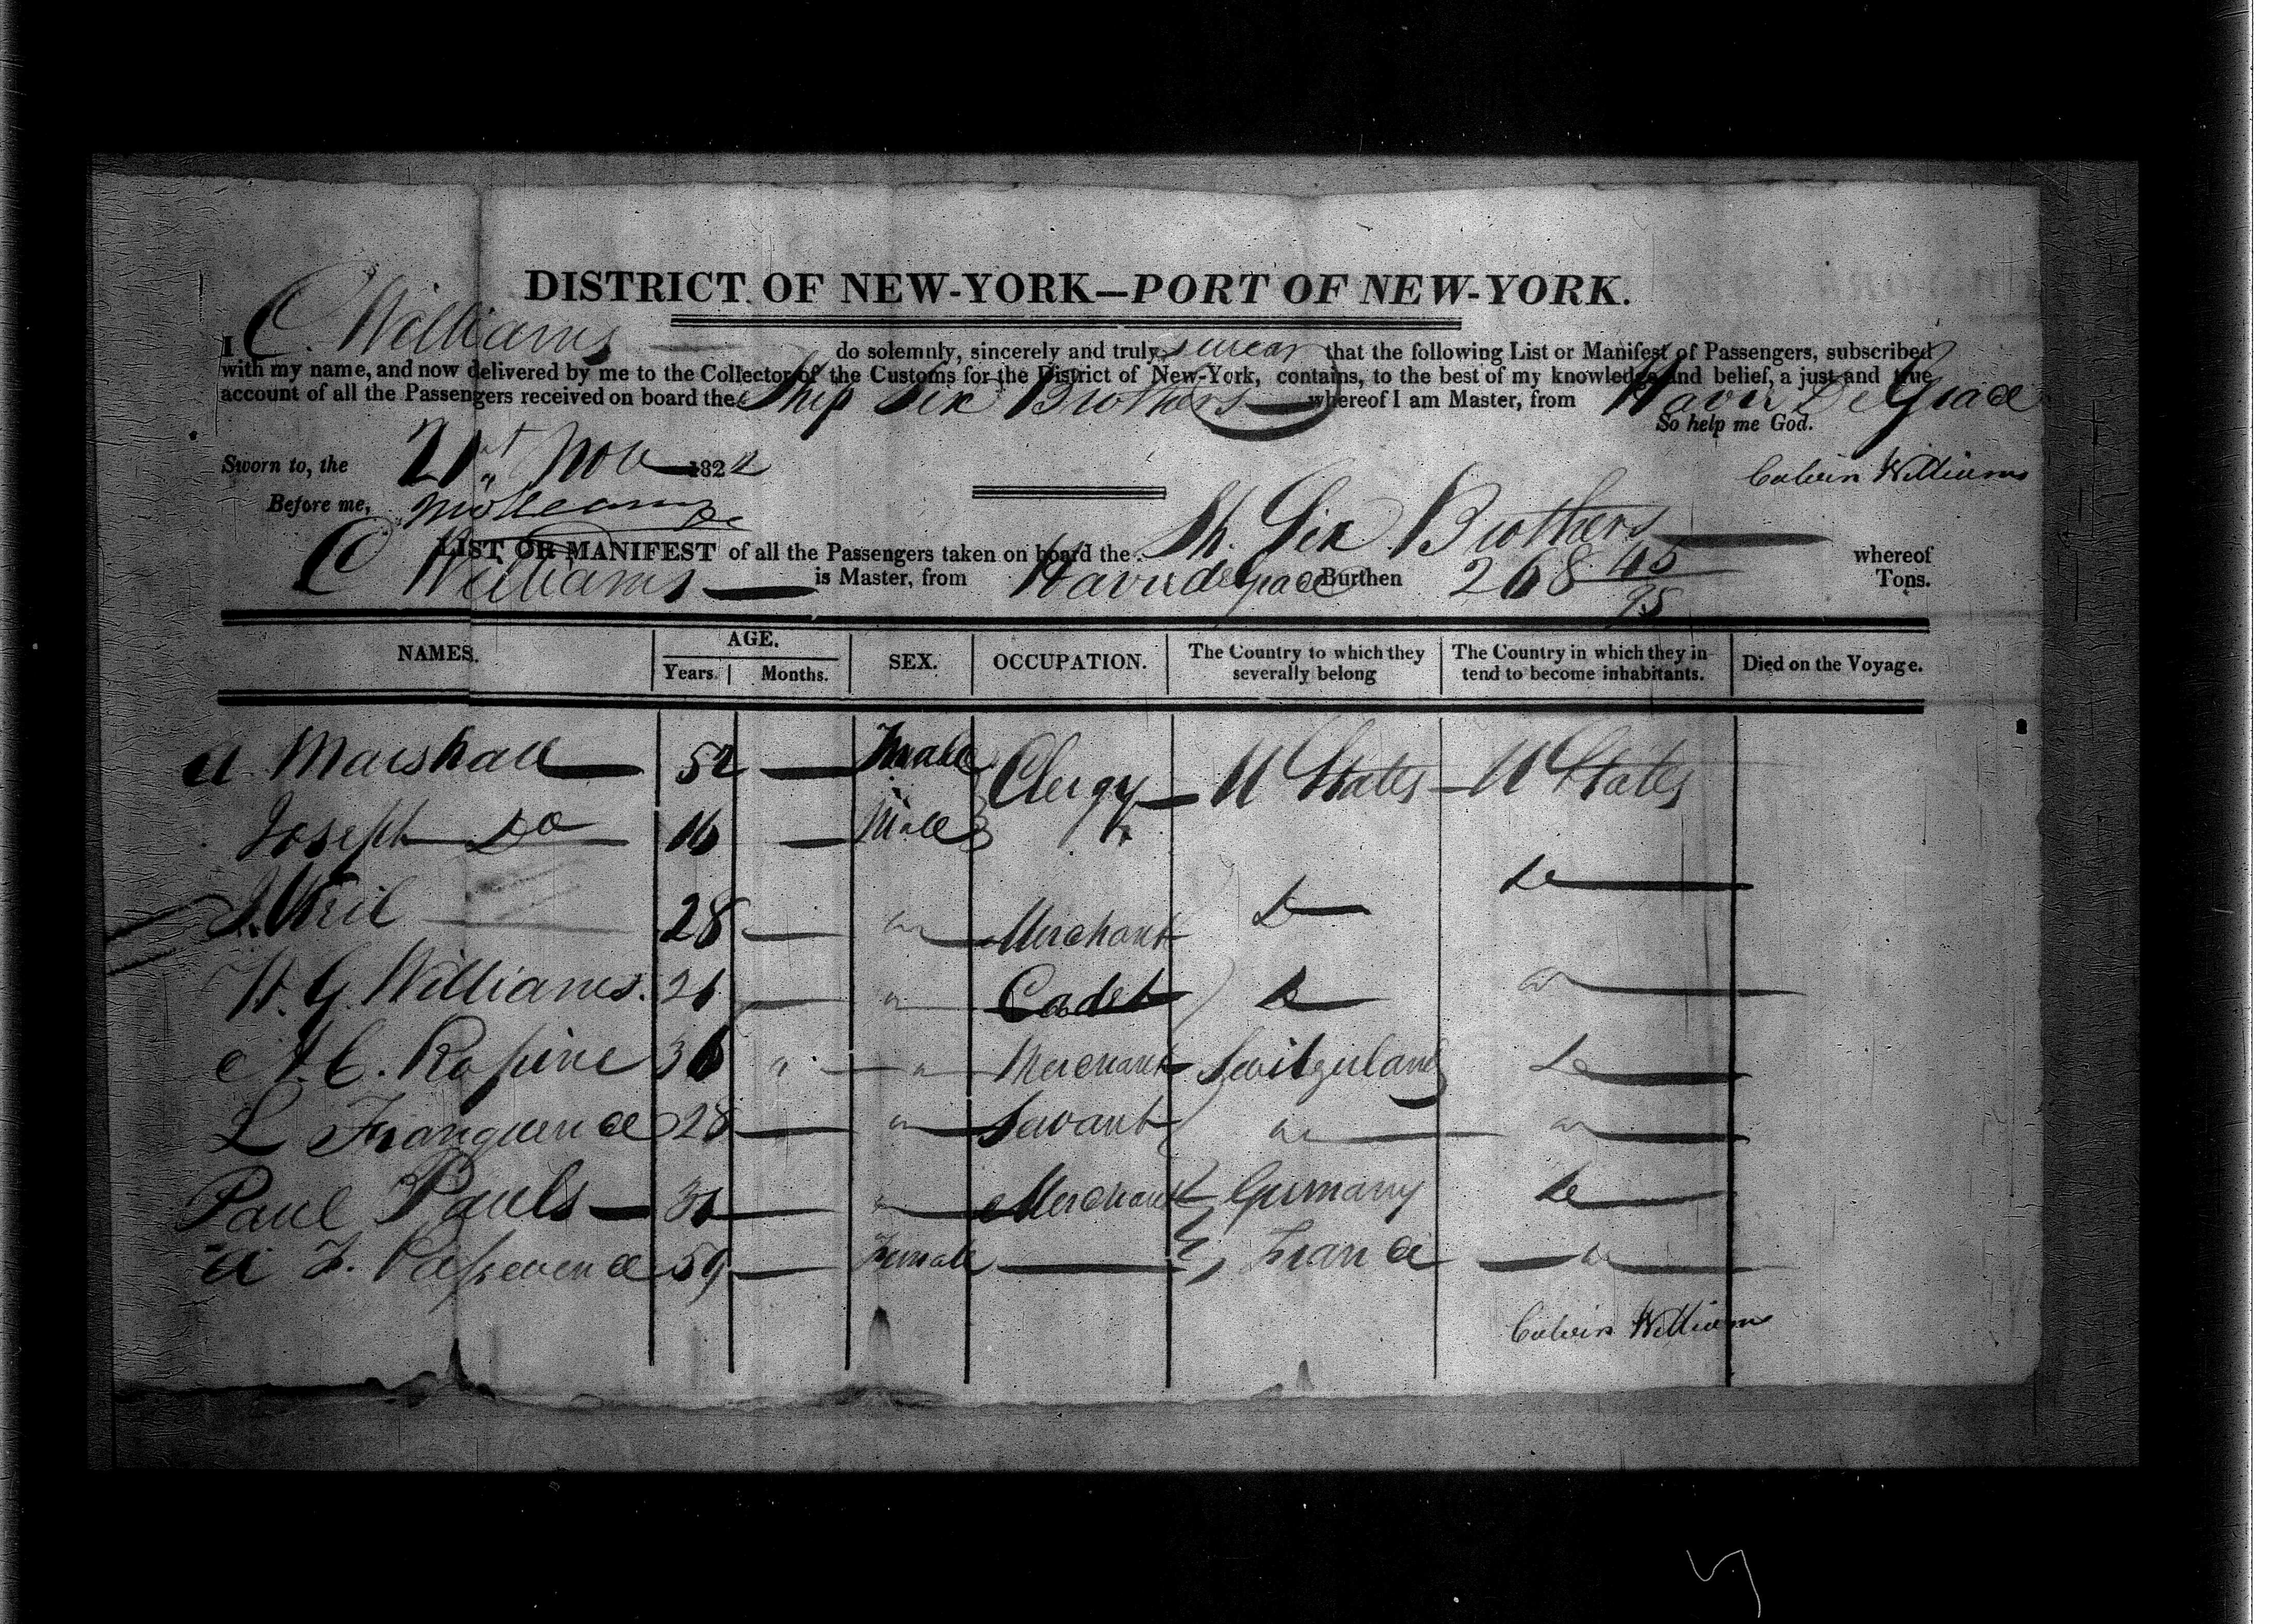 DISTRICT OF NEW-YORK—PORT OF NEW-YORK.
I C. Williams do solemnly, sincerely and truly swear that the following List or Manifest of Passengers, subscribed
with my name, and now delivered by me to the Collector of the Customs for the District of New-York, contains, to the best of my knowledge and belief, a just and true
account of all the Passengers received on board the Ship Six Brothers whereof I am Master, from Havre De Grace
So help me God.
Sworn to, the 21st Nov 1822
Calvin Williams
Before me,
LIST OR MANIFEST of all the Passengers taken on board the Sh. Six Brothers whereof
C Williams is Master, from Havre de Grace Burthen 268 45/95 Tons.
NAMES. AGE. Years. Months. SEX. OCCUPATION. The Country to which they severally belong The Country in which they intend to become inhabitants. Died on the Voyage.
A Marshall 52 — Female Clergy — U States — U States
Joseph Do 16 — Male
J. 28 — " Merchant Do Do
H. G. Williams. 26 — " Cadet Do "
A. C. Rapine 36 " " Merchant Switzerland Do
L Franquence 28 — " Servant " "
Paul Pauls — 31 — " Merchant Germany Do
A F. 59 — Female — France — Do
Calvin Williams